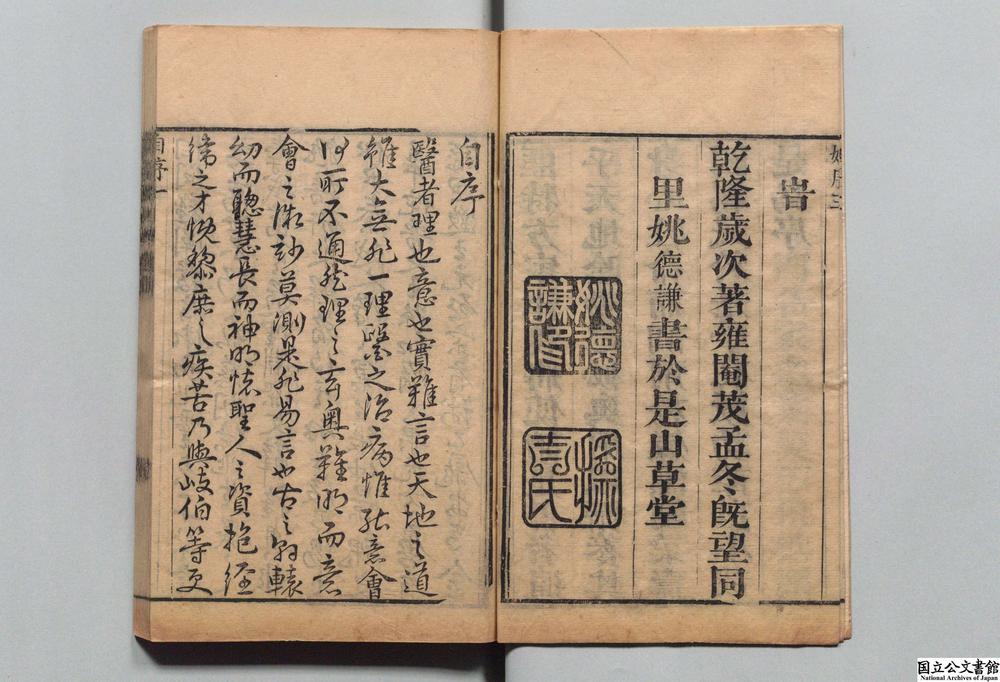 姚序三
旹
乾隆歲次著雍閹茂孟冬既望同
里姚德謙書於是山草堂
姚德
謙印
氏
自序
醫者理也意也實難言也天地之道
雖大無非一理醫之治病惟在意會
何所不通然理之玄奧難明而意
會之微妙莫測是非易言也古之軒轅
幼而聰慧長而神明懷聖人之資抱經
緯之才憫黎庶之疾苦乃與岐伯等更
自序一
国立公文書館
National Archives of Japan